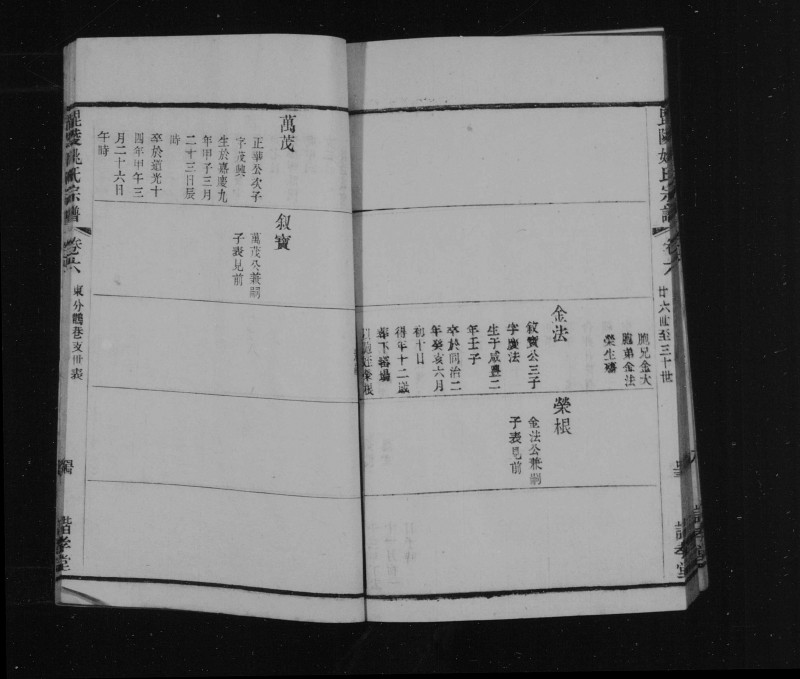 廿六世至三十世
胞兄金大
胞弟金法
榮生嗣
金法
叙寶公三子
字慶法
生于咸豐二
年壬子
卒於同治二
年癸亥六月
初十日
得年十二歲
榮根
金法公兼嗣
子表見前
萬茂
正華公次子
字茂興
生於嘉慶九
年甲子三月
二十三日辰
時
卒於道光十
四年甲午三
月二十六日
午時
叙寶
萬茂公兼嗣
子表見前
姚氏宗譜
卷六
東分鶴巷支世表
諧孝堂